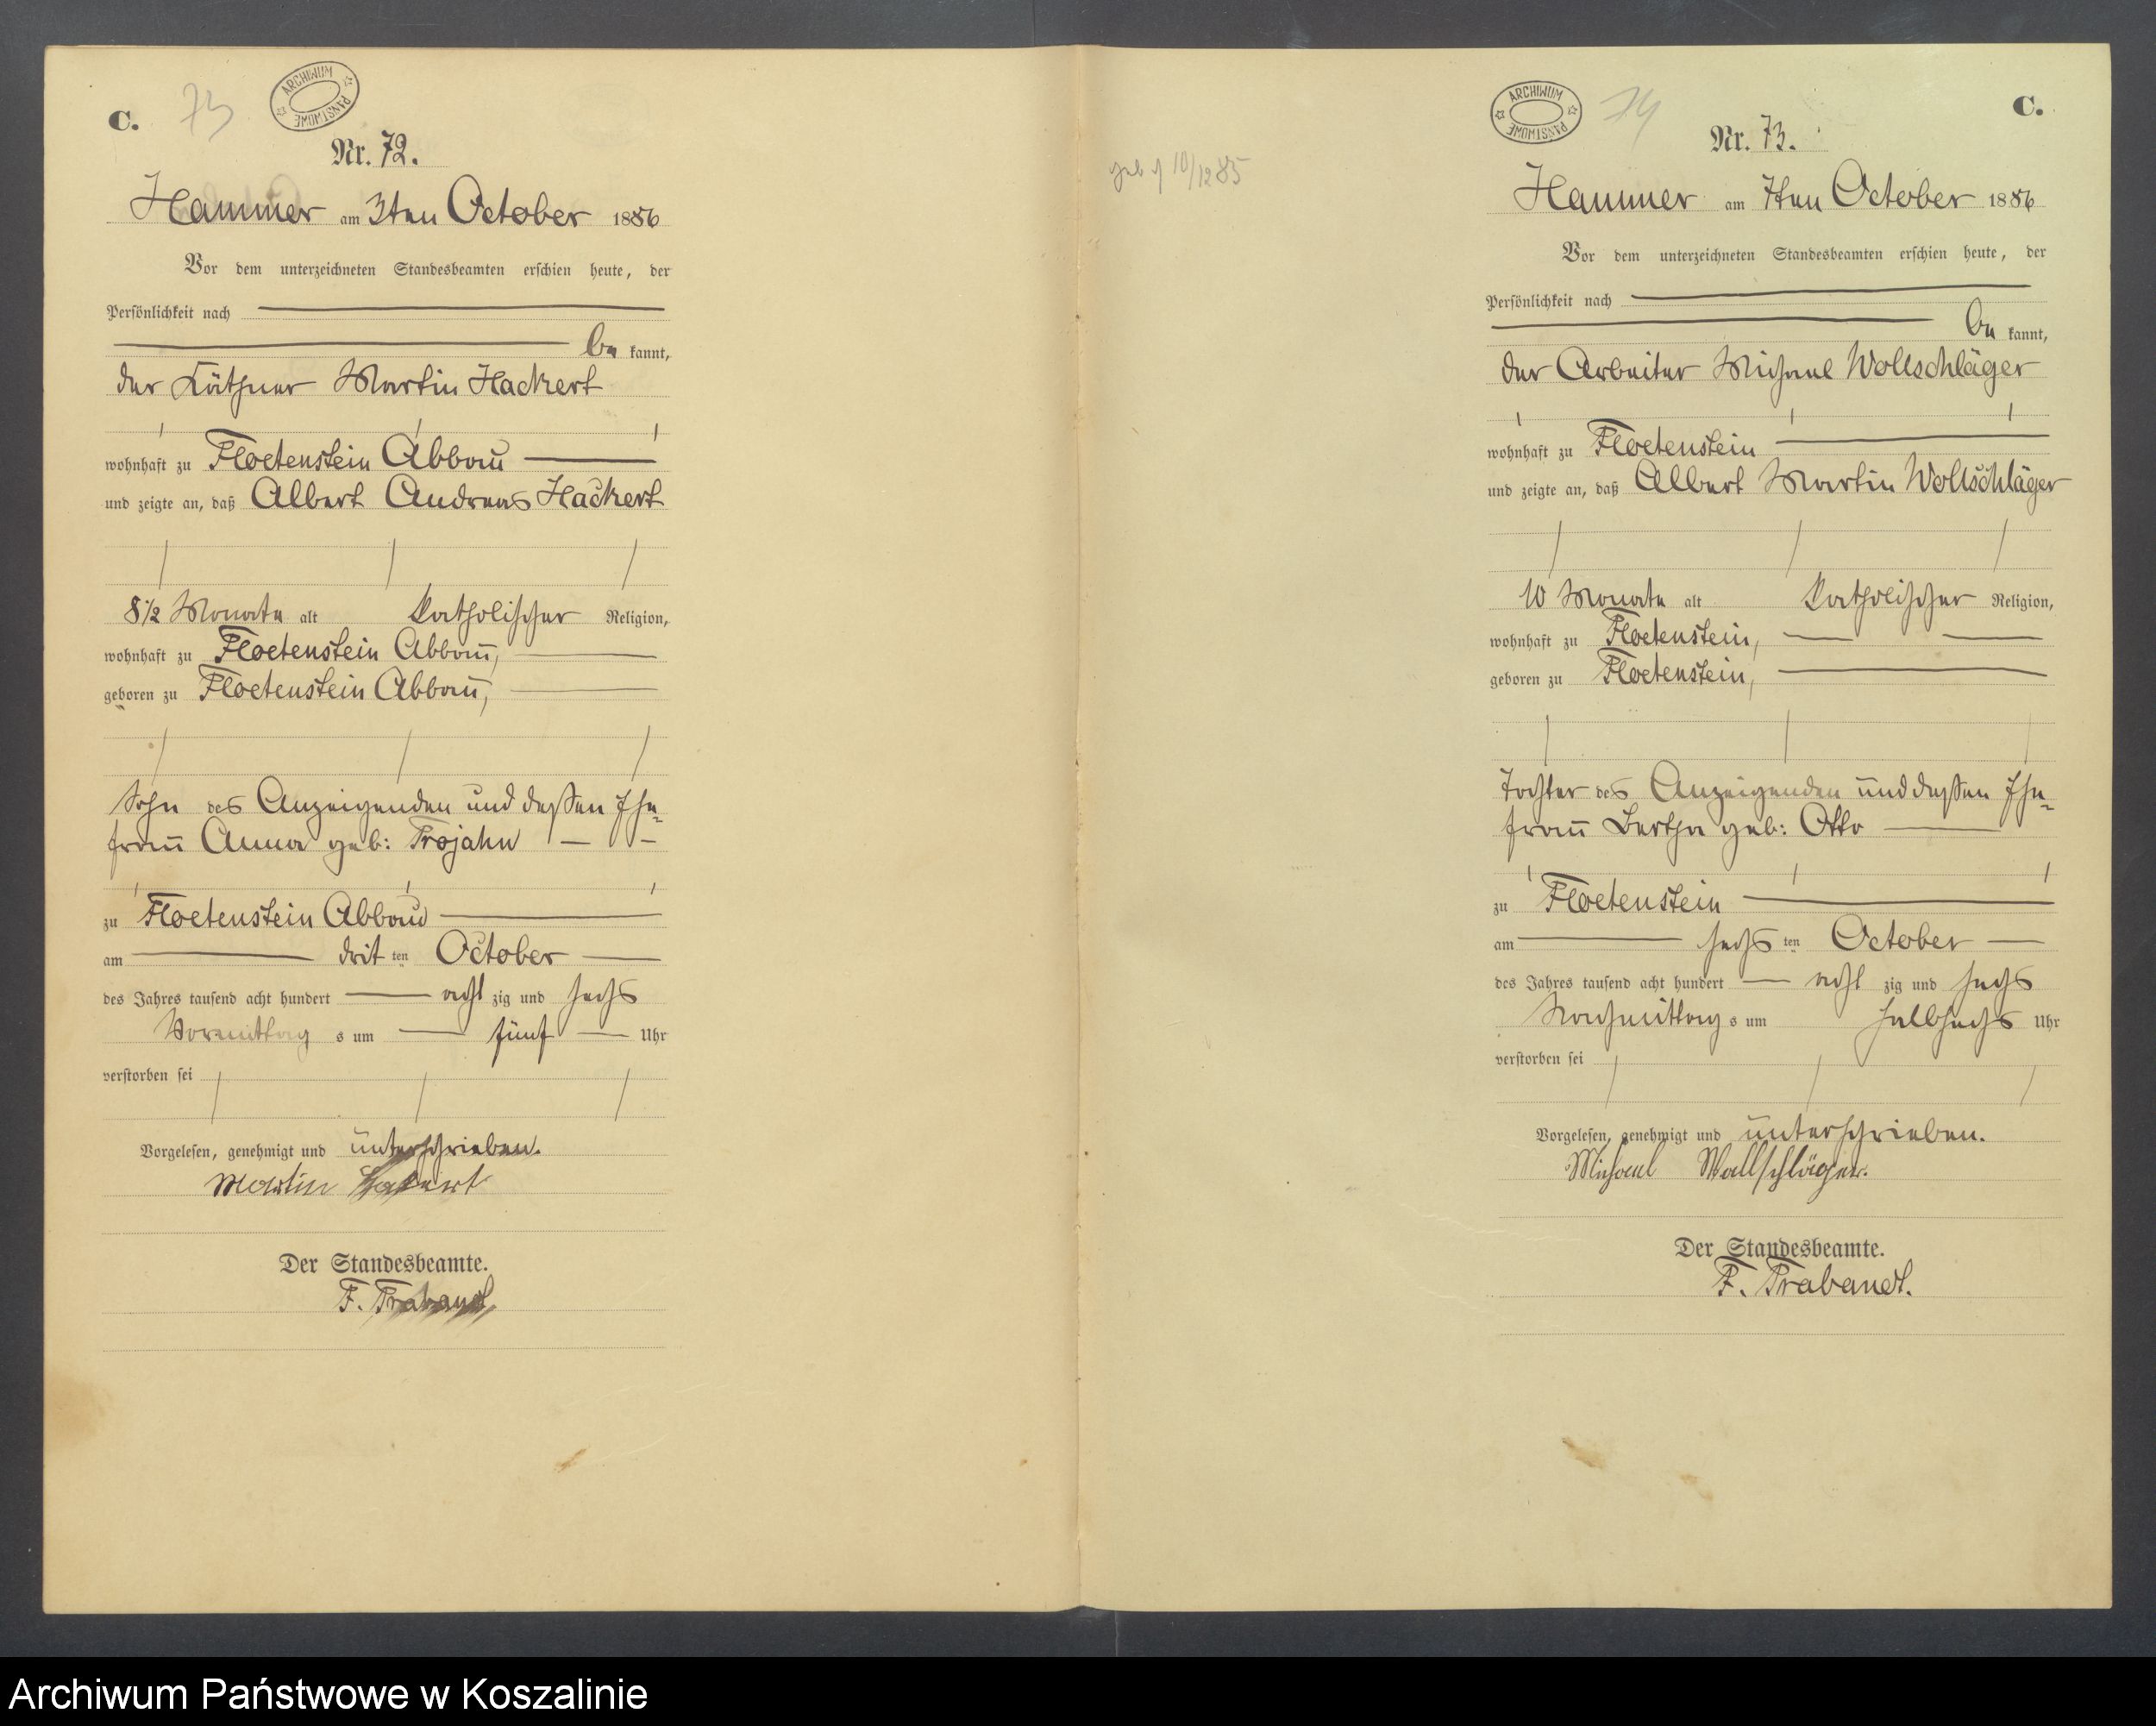 C.
73
ARCHIWUM PAŃSTWOWE
Nr. 72.
Hammer am 3ten October 1886
Vor dem unterzeichneten Standesbeamten erschien heute, der
Persönlichkeit nach
be kannt,
der Käthner Martin Hackert
wohnhaft zu Floetenstein Abbau
und zeigte an, daß Albert Andreas Hackert
8 1/2 Monate alt katholischer Religion,
wohnhaft zu Floetenstein Abbau,
geboren zu Floetenstein Abbau,
Sohn des Anzeigenden und dessen Ehe=
frau Anna geb: Trojahn
zu Floetenstein Abbau
am drit ten October
des Jahres tausend acht hundert acht zig und sechs
Vormittag s um fünf Uhr
verstorben sei
Vorgelesen, genehmigt und unterschrieben.
Martin Hakert
Der Standesbeamte.
F. Trabandt.
geb 10/12 85
ARCHIWUM PAŃSTWOWE
74
C.
Nr. 73.
Hammer am 7ten October 1886
Vor dem unterzeichneten Standesbeamten erschien heute, der
Persönlichkeit nach
be kannt,
der Arbeiter Michael Wollschläger
wohnhaft zu Floetenstein
und zeigte an, daß Albert Martin Wollschläger
10 Monate alt katholischer Religion,
wohnhaft zu Floetenstein,
geboren zu Floetenstein,
Tochter des Anzeigenden und dessen Ehe=
frau Bertha geb: Otto
zu Floetenstein
am sechs ten October
des Jahres tausend acht hundert acht zig und sechs
Nachmittag s um halbsechs Uhr
verstorben sei
Vorgelesen, genehmigt und unterschrieben.
Michael Wallschläger.
Der Standesbeamte.
F. Trabandt.
Archiwum Państwowe w Koszalinie